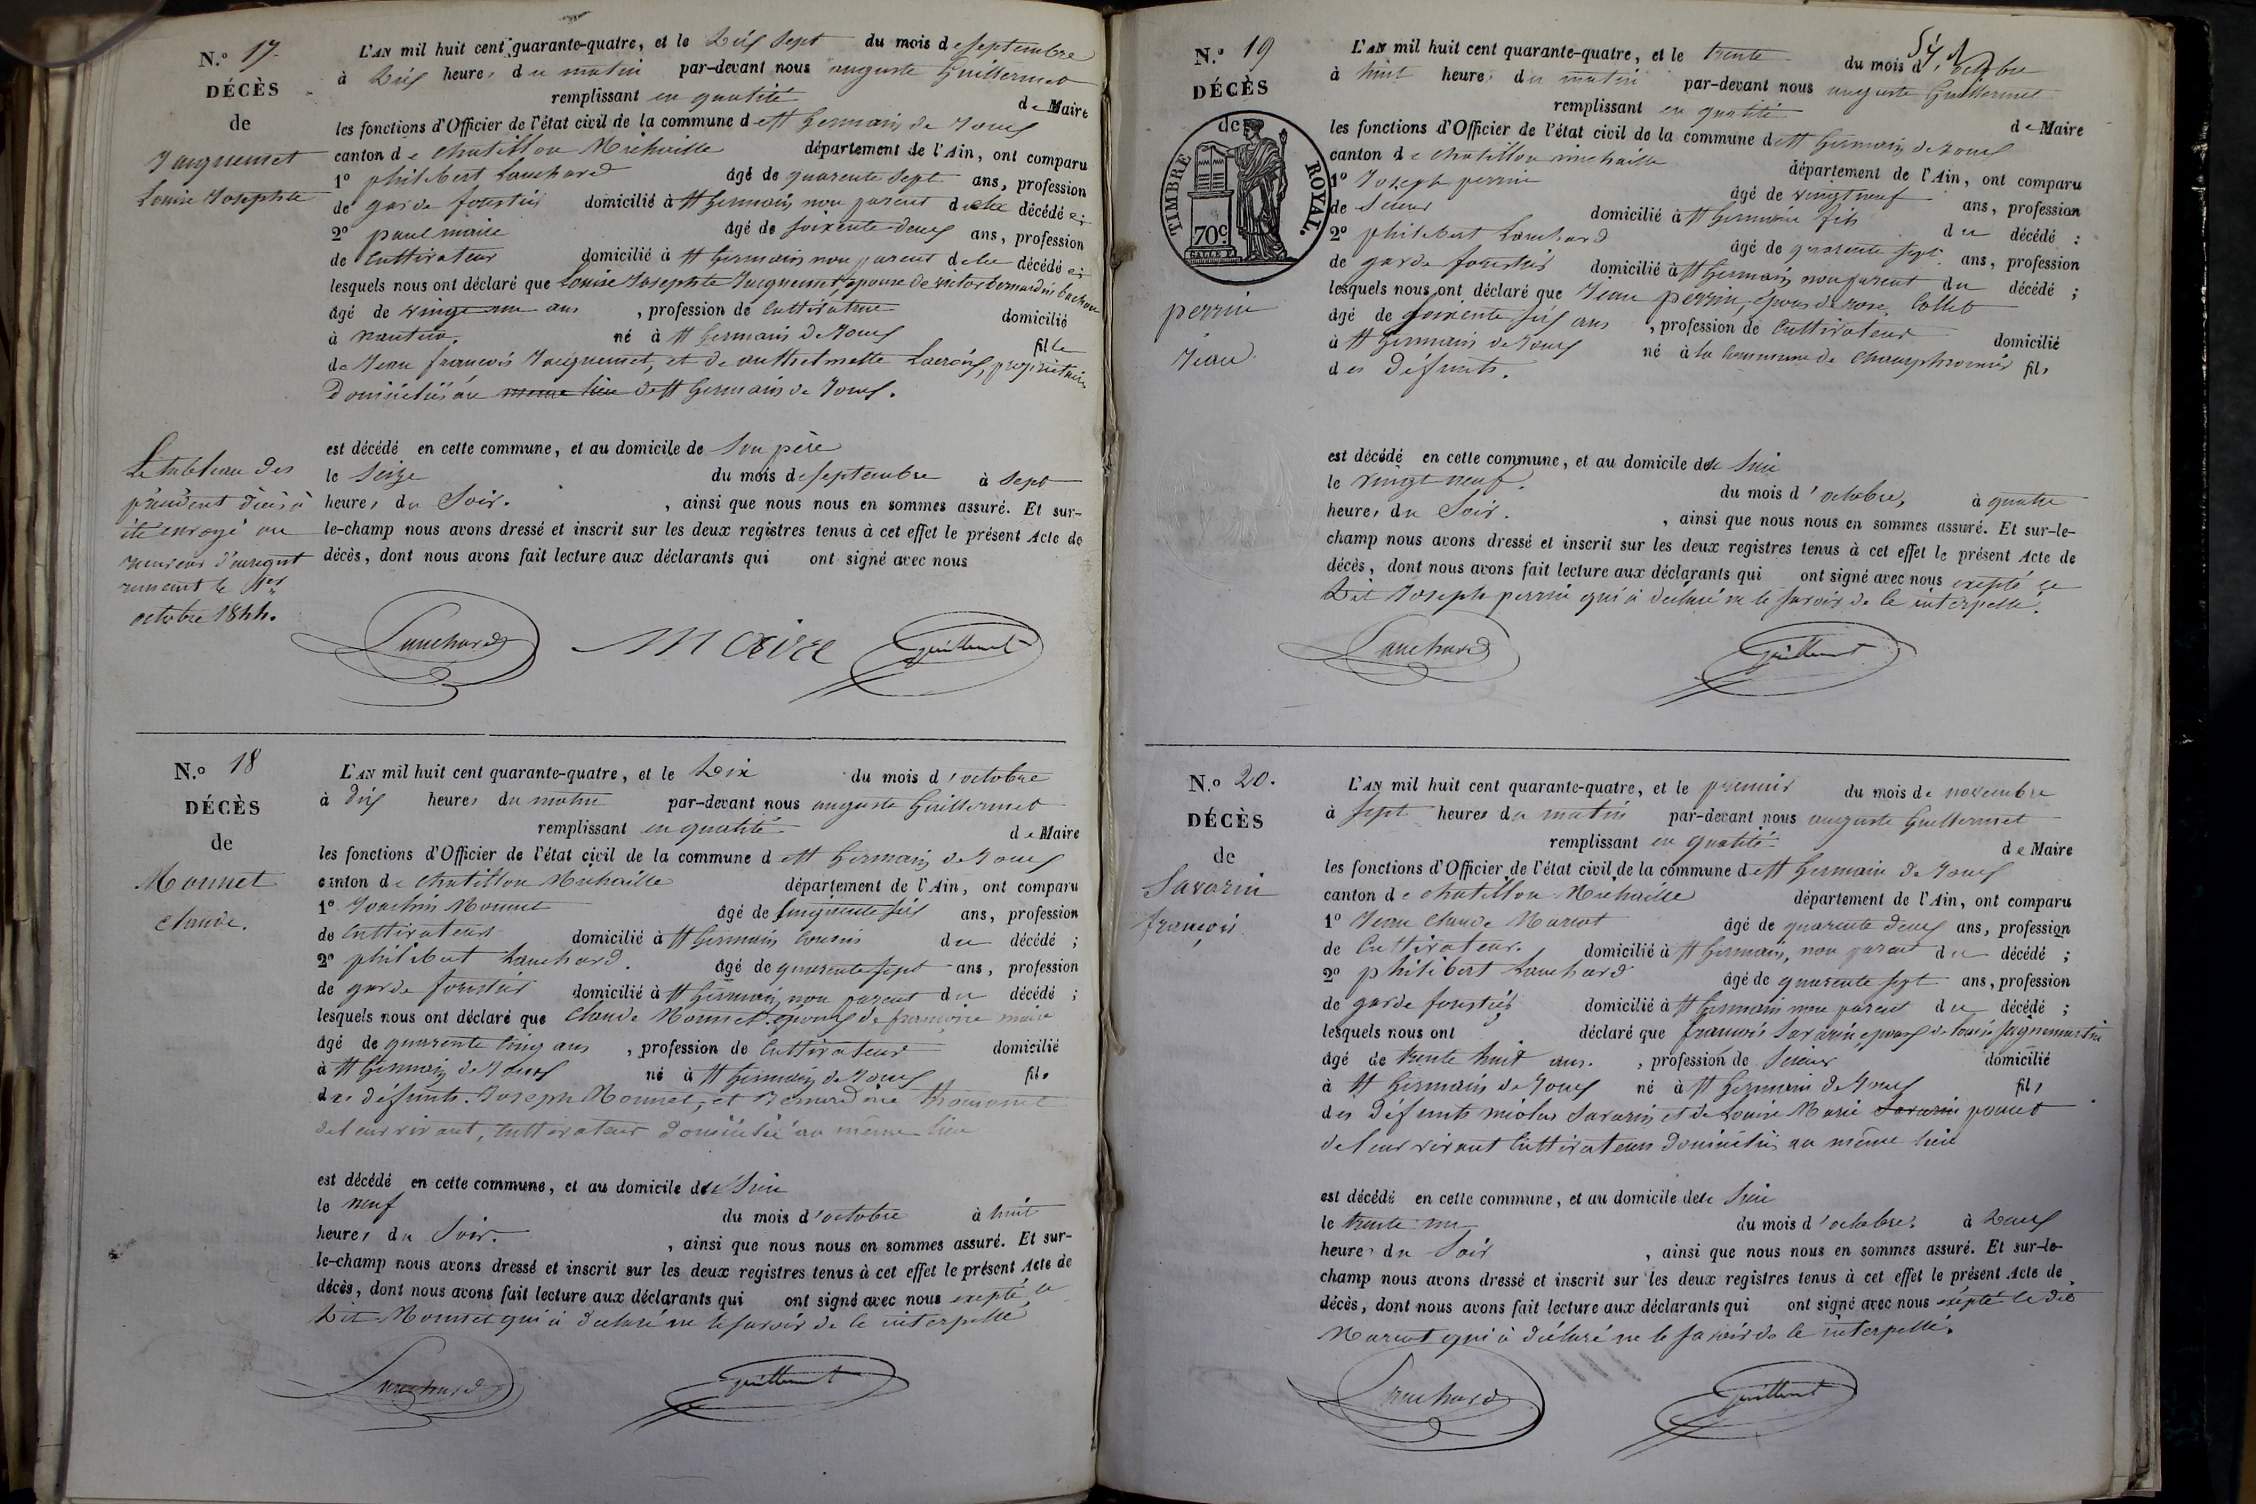 N.o 17.
DÉCÈS
de
Jacquemet
Louise Josephte
L'AN mil huit cent quarante-quatre, et le Dix Sept du mois de septembre
à Dix heures du matin par-devant nous auguste Guillermet
remplissant en qualité de Maire
les fonctions d'Officier de l'état civil de la commune de st Germain de Joux
canton de Chatillon Michaille département de l'Ain, ont comparu
1o philibert Lanchard âgé de quarente Sept ans, profession
de garde forestier domicilié à st Germain non parent de la décédé
2o paul maire âgé de Soixente-deux ans, profession
de Cultivateur domicilié à st Germain non parent de la décédé
lesquels nous ont déclaré que Louise Josephte Jacquemet, épouse de victor bernardin
âgé de vingt un ans, profession de Cultivatrice domicilié
à nantua. né à st Germain de Joux fille
de Jean francois Jacquemet, et de anthelmette Lacroix, propriétaires
Domiciliés au meme lieu de st Germain de Joux.
est décédé en cette commune, et au domicile de Son père
le Seize du mois de septembre à sept
heures du Soir. , ainsi que nous nous en sommes assuré. Et sur-
le-champ nous avons dressé et inscrit sur les deux registres tenus à cet effet le présent Acte de
décès, dont nous avons fait lecture aux déclarants qui ont signé avec nous
Le tableau des
présent décès à
été envoyé au
receveur d'enregist
rement le 1er
octobre 1844.
Lanchard Maire Guillermet
N.o 18
DÉCÈS
de
Monnet
Claude.
L'AN mil huit cent quarante-quatre, et le Dix du mois d'octobre
à dix heures du matin par-devant nous auguste Guillermet
remplissant en qualité de Maire
les fonctions d'Officier de l'état civil de la commune de st Germain de Joux
canton de Chatillon Michaille département de l'Ain, ont comparu
1o Joachim Monnet âgé de Cinquente six ans, profession
de Cultivateur domicilié à st Germain Cousin du décédé ;
2o philibert Lanchard. âgé de quarente sept ans, profession
de garde forestier domicilié à st Germain, non parent du décédé ;
lesquels nous ont déclaré que Claude Monnet, époux de francoise maire
âgé de quarente Cinq ans, profession de Cultivateur domicilié
à st Germain de Joux né à st Germain de Joux fils
des défunts. Joseph Monnet, et Bernardine
de leur vivant, Cultivateur domicilié au même lieu
est décédé en cette commune, et au domicile de le Sien
le neuf du mois d'octobre à huit
heures du Soir. , ainsi que nous nous en sommes assuré. Et sur-
le-champ nous avons dressé et inscrit sur les deux registres tenus à cet effet le présent Acte de
décès, dont nous avons fait lecture aux déclarants qui ont signé avec nous exepté le
Dit Monnet qui à déclaré ne le savoir de ce interpellé
Lanchard Guillermet
54
N.o 19
DÉCÈS
de
TIMBRE ROYAL.
70c
perrin
Jean.
L'AN mil huit cent quarante-quatre, et le trente du mois d'octobre
à huit heures du matin par-devant nous auguste Guillermet
remplissant en qualité de Maire
les fonctions d'Officier de l'état civil de la commune de st Germain de Joux
canton de Chatillon michaille département de l'Ain, ont comparu
1o Joseph perrin âgé de vingt neuf ans, profession
de Scieur domicilié à st Germain fils du décédé ;
2o philibert Lanchard âgé de quarente sept ans, profession
de garde forestier domicilié à st Germain non parent du décédé ;
lesquels nous ont déclaré que Jean perrin, époux de rose Collet
âgé de soixente six ans, profession de Cultivateur domicilié
à st Germain de Joux né à la Commune de Champfromier fils
des Défunts.
est décédé en cette commune, et au domicile de le Sien
le vingt neuf. du mois d'octobre, à quatre
heures du Soir. , ainsi que nous nous en sommes assuré. Et sur-le-
champ nous avons dressé et inscrit sur les deux registres tenus à cet effet le présent Acte de
décès, dont nous avons fait lecture aux déclarants qui ont signé avec nous exepté le
Dit Joseph perrin qui à déclaré ne le savoir de ce interpellé.
Lanchard Guillermet
N.o 20.
DÉCÈS
de
Savarin
françois
L'AN mil huit cent quarante-quatre, et le premier du mois de novembre
à sept heures du matin par-devant nous auguste Guillermet
remplissant en qualité de Maire
les fonctions d'Officier de l'état civil de la commune de st Germain de Joux
canton de Chatillon Michaille département de l'Ain, ont comparu
1o Jean Claude Marcot âgé de quarente deux ans, profession
de Cultivateur. domicilié à st Germain, non parent du décédé ;
2o philibert Lanchard âgé de quarente sept ans, profession
de garde forestier domicilié à st Germain non parent du décédé ;
lesquels nous ont déclaré que francois Savarin, époux de Louise
âgé de trente huit ans. , profession de Scieur domicilié
à st Germain de Joux né à st Germain de Joux fils
des Défunts nicolas Savarin, et de Louise Marie Savarin poncet
de leur vivant Cultivateurs Domiciliés au même lieu
est décédé en cette commune, et au domicile de le Sien
le trente un du mois d'octobre, à Deux
heures du Soir , ainsi que nous nous en sommes assuré. Et sur-le-
champ nous avons dressé et inscrit sur les deux registres tenus à cet effet le présent Acte de
décès, dont nous avons fait lecture aux déclarants qui ont signé avec nous exépté le dit
Marcot qui à déclaré ne le savoir de ce interpellé.
Lanchard Guillermet